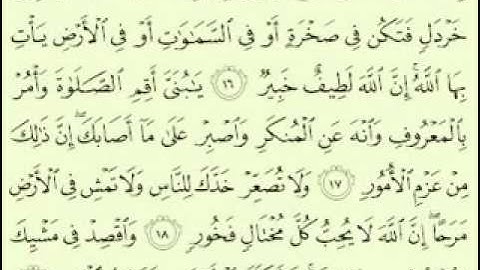 خَرْدَلٍ فَتَكُن فِى صَخْرَةٍ أَوْ فِى ٱلسَّمَـٰوَٰتِ أَوْ فِى ٱلْأَرْضِ يَأْتِ
بِهَا ٱللَّهُ ۚ إِنَّ ٱللَّهَ لَطِيفٌ خَبِيرٌ ١٦ يَـٰبُنَىَّ أَقِمِ ٱلصَّلَوٰةَ وَأْمُرْ
بِٱلْمَعْرُوفِ وَٱنْهَ عَنِ ٱلْمُنكَرِ وَٱصْبِرْ عَلَىٰ مَآ أَصَابَكَ ۖ إِنَّ ذَٰلِكَ
مِنْ عَزْمِ ٱلْأُمُورِ ١٧ وَلَا تُصَعِّرْ خَدَّكَ لِلنَّاسِ وَلَا تَمْشِ فِى ٱلْأَرْضِ
مَرَحًا ۖ إِنَّ ٱللَّهَ لَا يُحِبُّ كُلَّ مُخْتَالٍ فَخُورٍ ١٨ وَٱقْصِدْ فِى مَشْيِكَ